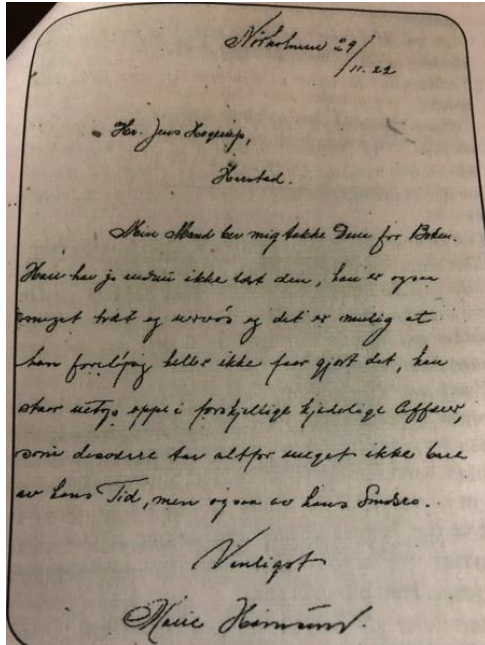 Nørholmen 29/11.22
Hr. Jens Hagerup,
Harstad.
Min Mand ber mig takke Dem for Boken.
Han har jo endnu ikke læst den, han er ogsaa
meget træt og nervøs og det er mulig at
han foreløpig heller ikke faar gjort det, han
staar netop oppe i forskjellige kjedelige Affærer,
som desværre tar altfor meget ikke bare
av hans Tid, men ogsaa av hans
Venligst
Marie Hamsund.